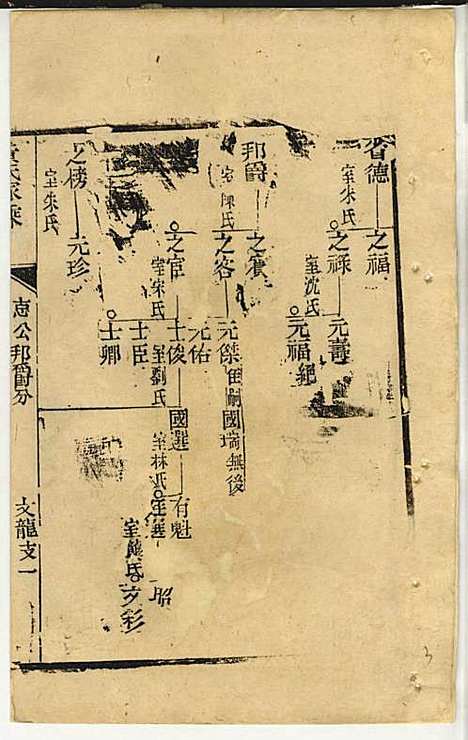 德
室朱氏
之福
之祿
室沈氏
元壽
元福絕
邦爵
之賓
之客
元傑
國瑞無後
元佑
之官
室宋氏
士俊
室劉氏
國選
室林氏
有魁
士臣
士卿
室熊氏
之榜
室朱氏
元珍
氏家乘
志公邦爵分
文龍支一
3